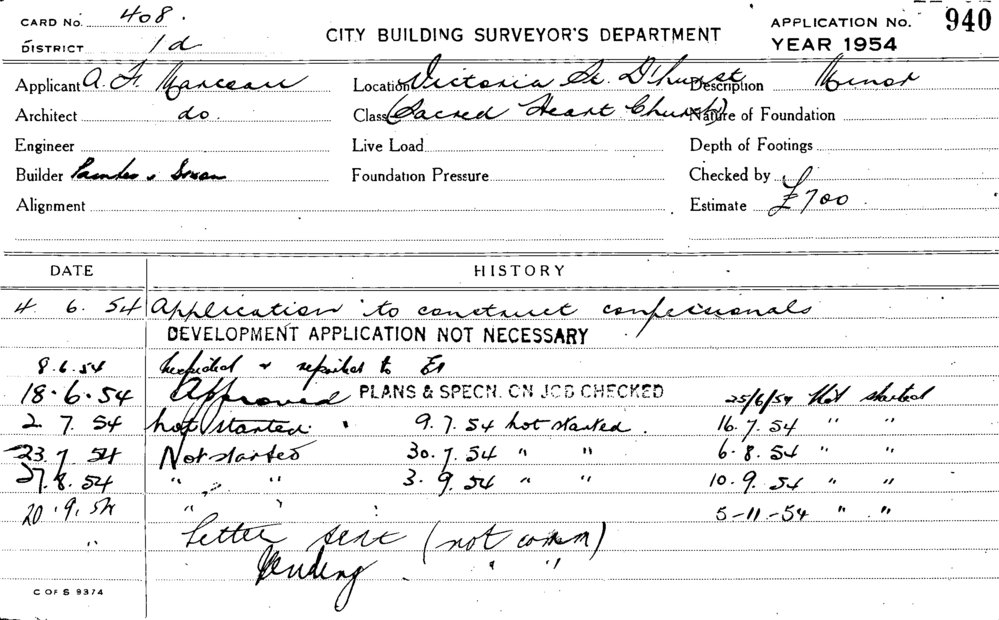 CARD No. 408. CITY BUILDING SURVEYOR'S DEPARTMENT APPLICATION No. 940
DISTRICT 1d YEAR 1954
Applicant A. F. Location Victoria St. D'hurst Description Minor
Architect do. Class (Sacred Heart Church) Nature of Foundation
Engineer Live Load Depth of Footings
Builder Foundation Pressure Checked by
Alignment Estimate £700
DATE HISTORY
4. 6. 54 Application to construct confessionals
DEVELOPMENT APPLICATION NOT NECESSARY
8.6.54 Inspected & reported to
18.6.54 Approved PLANS & SPECN. ON JOB CHECKED 25/6/54 Not started
2. 7. 54 not started. 9. 7. 54 not started. 16. 7. 54 " "
23. 7. 54 Not started 30. 7. 54 " " 6. 8. 54 " "
27. 8. 54 " " 3. 9. 54 " " 10. 9. 54 " "
20. 9. 54 " " 5-11-54 " "
" Letter sent (not comm)
Pending " "
C OF S 9374